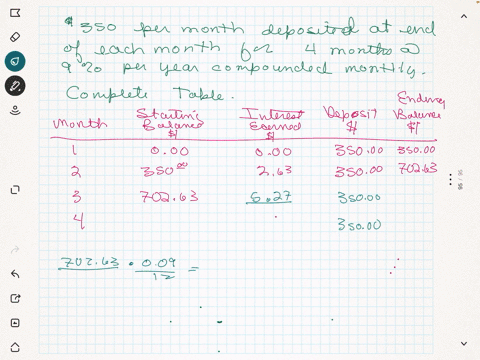 $350 per month deposited at end
of each month for 4 months @
9% per year compounded monthly.
Complete Table.
Month Starting Balance $ Interest Earned $ Deposit $ Ending Balance $
1 0.00 0.00 350.00 350.00
2 350.00 2.63 350.00 702.63
3 702.63 5.27 350.00
4 350.00
702.63 · 0.09/12 =